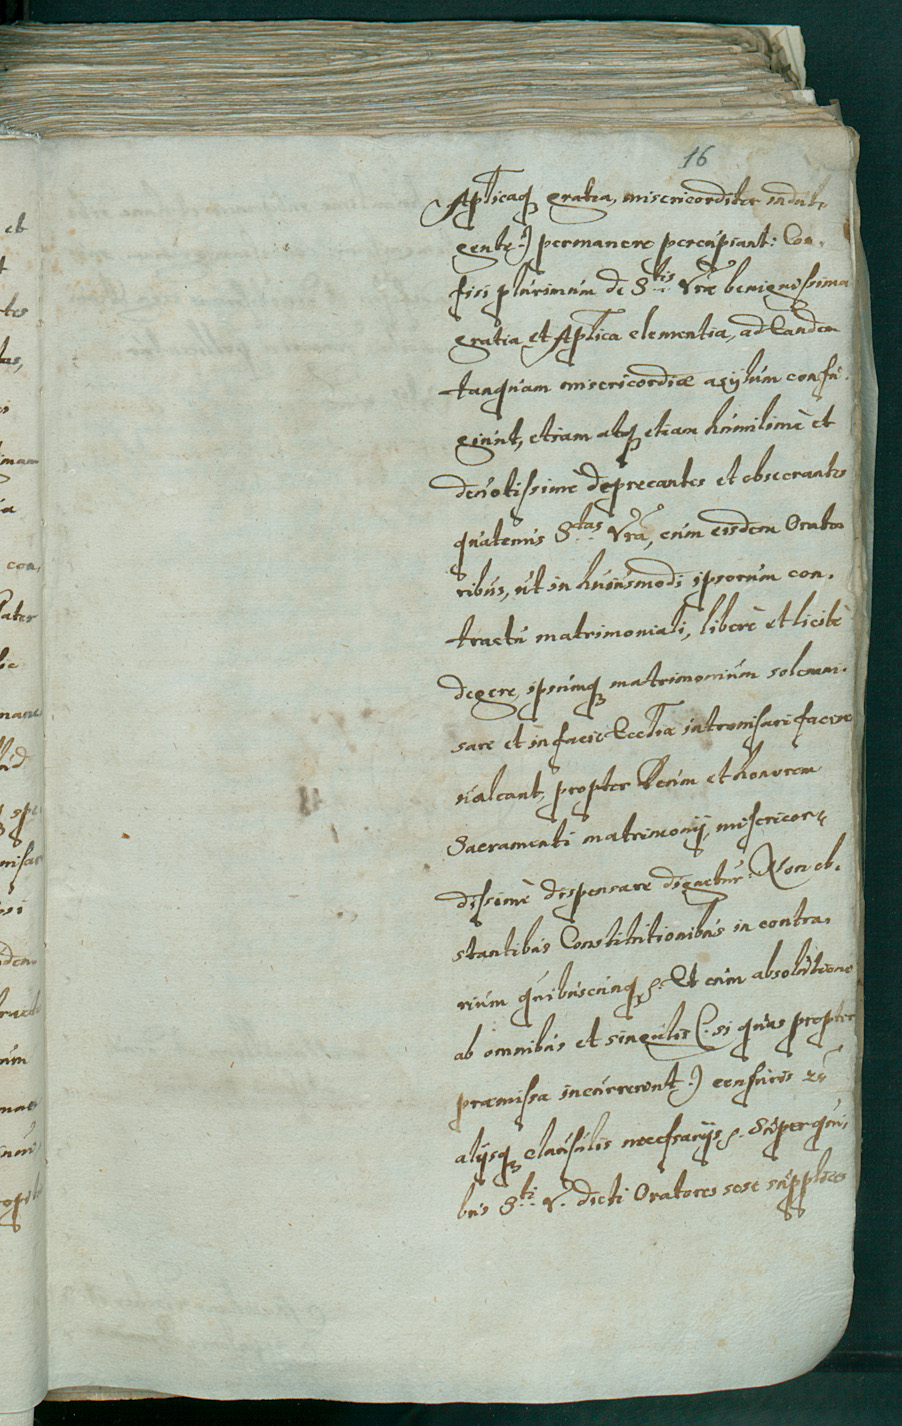 16
Aplicaq gratia, misericorditer indul,
gente:) permanere percupiant: Con,
fisi plurimum de S.tis Vrae benignissima
gratia et Aplica clementia, ad Eandem
tanquam misericordiae asylum confu,
giunt, etiam atq etiam humilimè et
devotissimè deprecantes et obsecrantes
quatenus S.tas Vra, cum eisdem Orato
ribus, ut in huiusmodi ipsorum con,
tractu matrimoniali, liberè et licitè
degere, ipsumq matrimonium solemni,
sare et in facie Eccliae intronisari facere
valeant, propter Deum et honorem
Sacramenti matrimonij, misericor,
dissimè dispensare dignetur. Non ob,
stantibus Constitutionibus in contra,
rium quibuscunq. Et cum absolutione
ab omnibus et singulis (: si quas propter
praemissa incurrerunt :) censuris
alijsq clausulis necessarijs. Super qui,
bus S.ti V. dicti Oratores sese supplices
et
con,